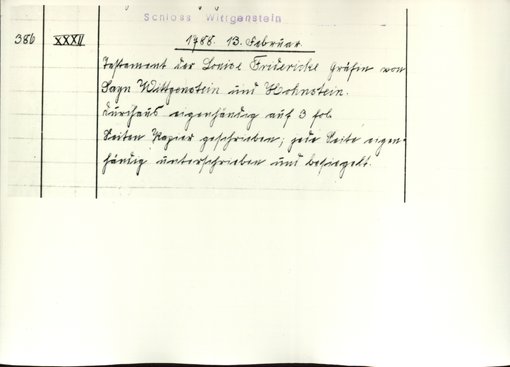 Schloss Wittgenstein
386 XXXII 1788. 13. Februar
Testament der Louise Fridericke Gräfin von
Sayn Wittgenstein und Hohnstein.
durchaus eigenhändig auf 3 fol.
Seiten Papier geschrieben; jede Seite eigen-
händig unterschrieben und besiegelt.